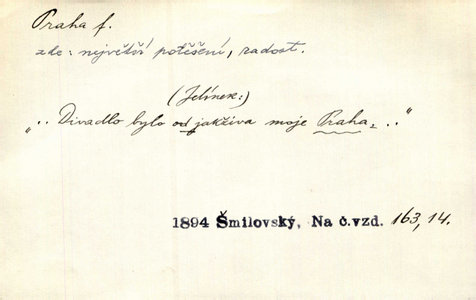 Praha f.
zde: největší potěšení, radost.
(Jelínek:)
„.. Divadlo bylo od jakživa moje Praha..."
1894 Šmilovský, Na č.vzd. 163,14.